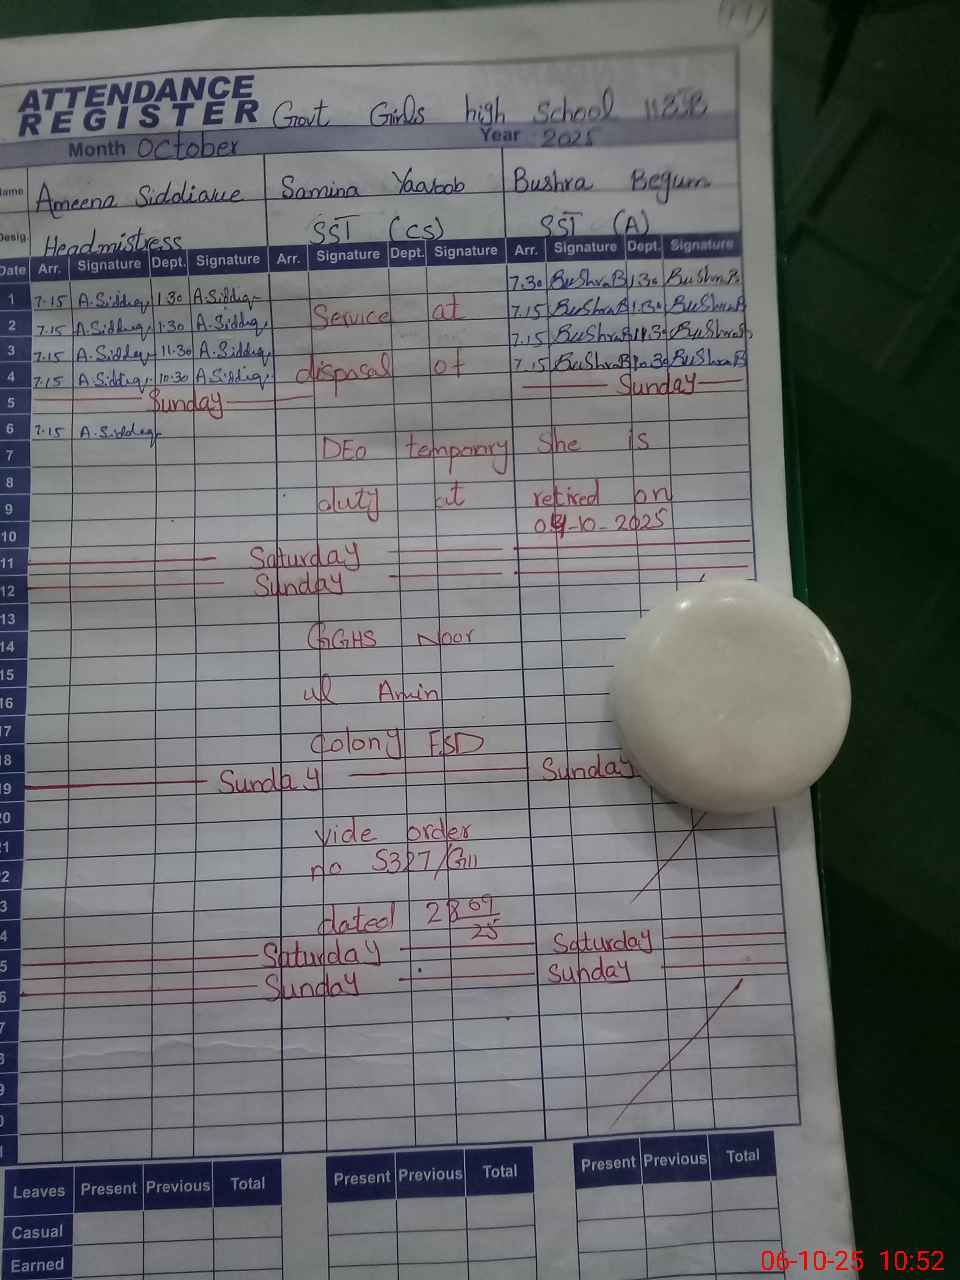 ATTENDANCE
REGISTER Govt Girls high School 118JB
Month October Year 2025
Name Ameena Siddique Samina Yaqoob Bushra Begum
Desig. Headmistress SST (CS) SST (A)
Date Arr. Signature Dept. Signature Arr. Signature Dept. Signature Arr. Signature Dept. Signature
7.30 BushraB 1.30 BushraB
1 7.15 A.Siddiq 1.30 A.Siddiq Service at 7.15 BushraB 1.30 BushraB
2 7.15 A.Siddiq 1.30 A.Siddiq 7.15 BushraB BushraB
3 7.15 A.Siddiq 11.30 A.Siddiq disposal of 7.15 BushraB BushraB
4 7.15 A.Siddiq 10.30 A.Siddiq Sunday
5 Sunday
6 7.15 A.Siddiq
7 DEO temporary She is
8
9 duty at retired on
10 04-10-2025
11 Saturday
12 Sunday
13
14 GGHS Noor
15
16 ul Amin
17
18 Colony FSD
19 Sunday Sunday
20
21 vide order
2 no 5327/GII
3
4 dated 28 09 25
5 Saturday Saturday
6 Sunday Sunday
7
8
9
0
1
Leaves Present Previous Total Present Previous Total Present Previous Total
Casual
Earned
06-10-25 10:52